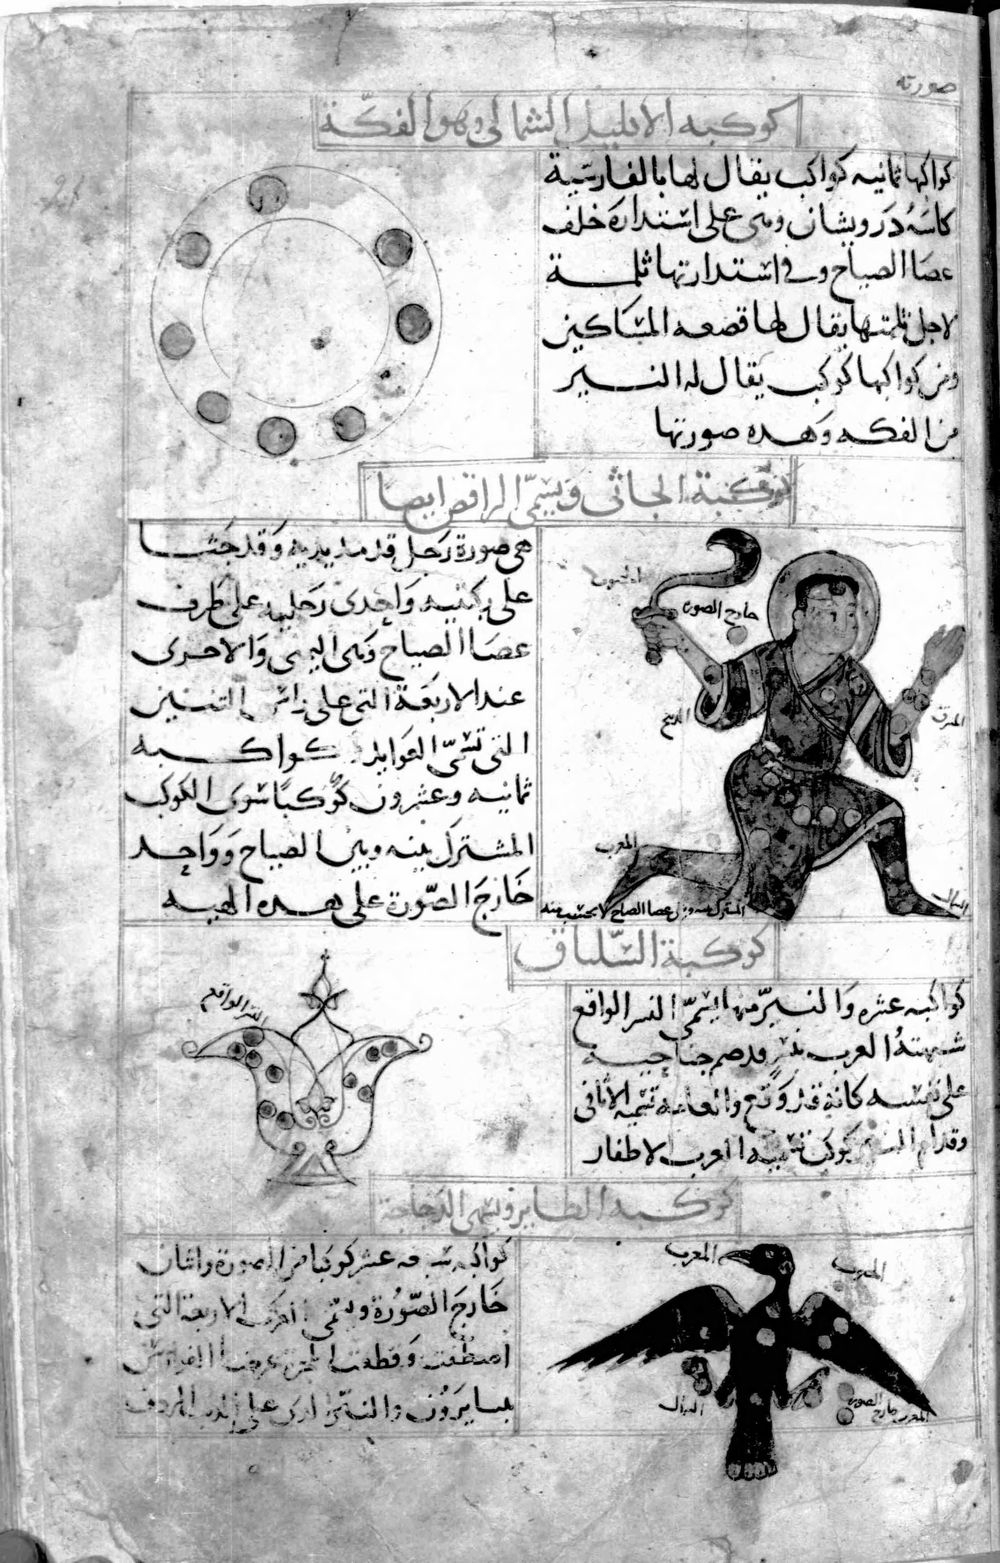 صورته
كوكبه الاكليل الشمالى وهو الفكّة
كواكبها ثمانيه كواكب يقال لها بالفارسية
كاسهُ درويشان وهى على استدارة خلف
عصا الصياح وفى استدارتها ثلمة
لاجل ثلمتها يقال لها قصعه المساكين
ومن كواكبها كوكب يقال له النير
من الفكه وهذه صورتها
كوكبة الجاثى ويسمّى الراقص ايضا
هى صورة رجل قد مد يديه وقد جثا
على ركبتيه واحدى رجليه على طرف
عصا الصياح وهى اليمنى والاخرى
عند الاربعة التى على راس التنين
التى تسمّى العوايد كواكبه
ثمانيه وعشرون كوكبًا سوى الكوكب
المشترك بينه وبين الصياح وواحد
خارج الصّورة على هذه الهيه
خارج الصوره
المرفق
المغرب
الشمال
المشترك بينه وبين عصا الصياح لا يحتسب منه
كوكبة السّلياق
كواكبه عشره والنيرّ منها يسمّى النسر الواقع
شبهتهُ العرب بنسر قد ضم جناحيه
على نفسه كانه قد وقع والعامة تسميه الاثافى
وقدام النسر كوكب تسميه العرب الاظفار
النسر الواقع
كوكبه الطاير ويسمى الدجاجة
كواكبه سبعه عشر كوكبا من الصورة واثنان
خارج الصّورة ويسمى العرب الاربعة التى
اصطفت وقطعت المجرة عرضا الفوارس
المغرب
الجنوب
الشمال
المغرب
خارج الصوره